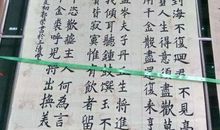 到海不復回君不見
人生得意須盡歡莫
用千金散盡還復來烹
岑夫子丹丘生將進
傾耳聽鐘鼓饌玉不
皆寂寞惟有飲者留
恣歡謔主人何為言
金裘呼兒將出換美